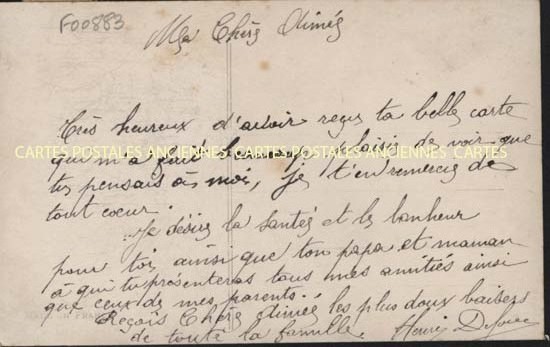 F00883
Ma Chère Aimée
Très heureux d'avoir reçu ta belle carte
qui m'a fait beaucoup plaisir de voir que
CARTES POSTALES ANCIENNES CARTES POSTALES ANCIENNES CARTES
tu pensais à moi, je t'en remercie de
tout coeur.
Je désire la santée et le bonheur
pour toi, ainsi que ton papa et maman
à qui tu présenteras tous mes amitiés ainsi
que ceux de mes parents.
Reçois Chère Aimée les plus doux baisers
de toute la famille. Henri